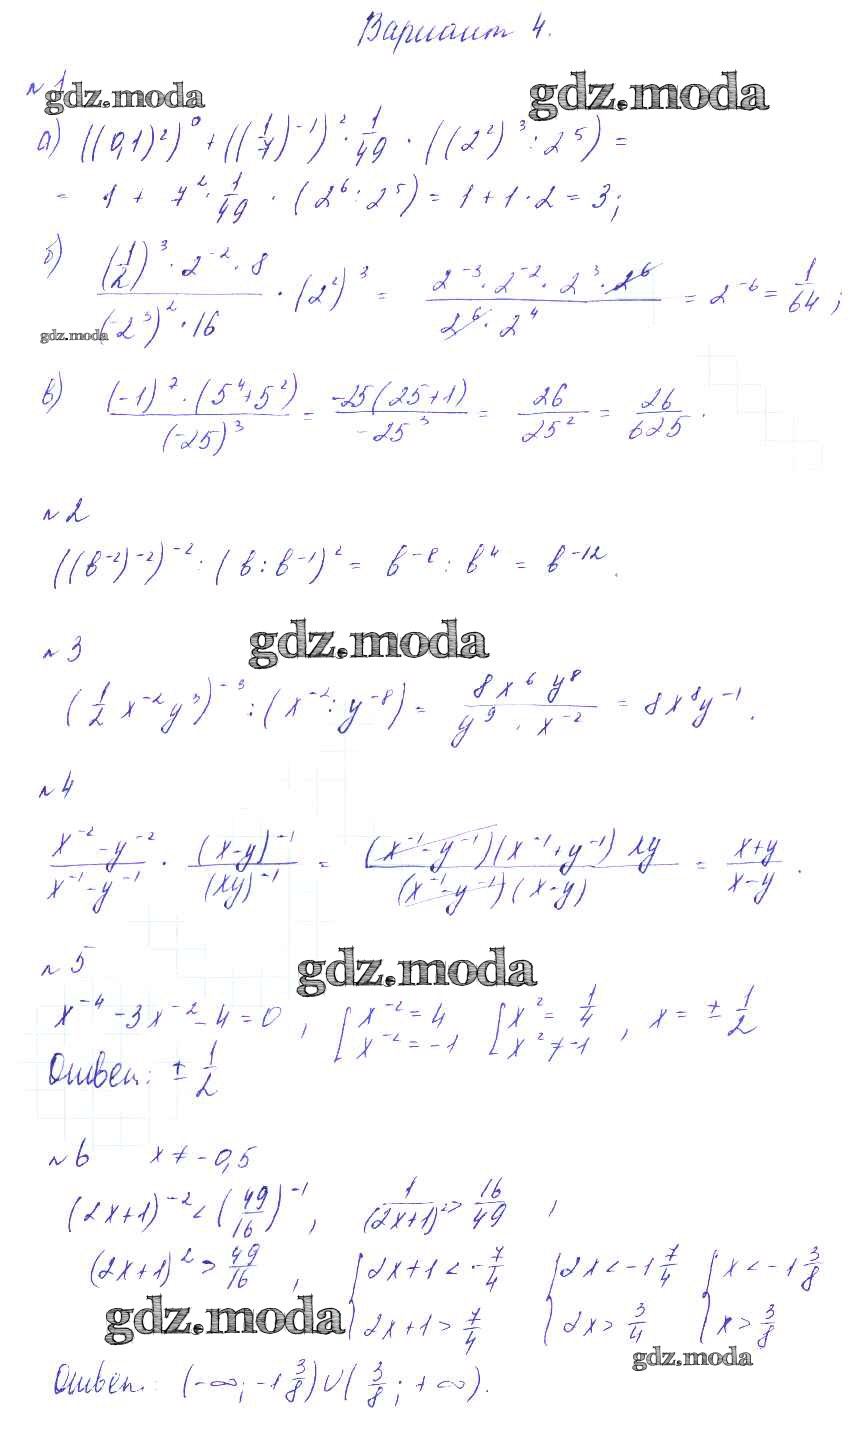 Вариант 4.
№ 1
gdz.moda
gdz.moda
а) ((0,1)²)⁰ + ((1/7)⁻¹)² · 1/49 · ((2²)³ : 2⁵) =
= 1 + 7² · 1/49 · (2⁶ : 2⁵) = 1 + 1 · 2 = 3;
б) ((1/2)³ · 2⁻² · 8)/((-2³)² · 16) · (2²)³ = (2⁻³ · 2⁻² · 2³ · 2⁶)/(2⁶ · 2⁴) = 2⁻⁶ = 1/64;
gdz.moda
в) ((-1)⁷ · (5⁴ + 5²))/((-25)³) = (-25(25+1))/(-25³) = 26/25² = 26/625.
№ 2
((b⁻²)⁻²)⁻² : (b : b⁻¹)² = b⁻⁸ : b⁴ = b⁻¹².
gdz.moda
№ 3
(1/2 x⁻² y³)⁻³ : (x⁻² : y⁻⁸) = (8x⁶ y⁸)/(y⁹ · x⁻²) = 8x⁸y⁻¹.
№ 4
(x⁻² - y⁻²)/(x⁻¹ - y⁻¹) · (x-y)⁻¹/(xy)⁻¹ = ((x⁻¹ - y⁻¹)(x⁻¹ + y⁻¹) xy)/((x⁻¹ - y⁻¹)(x-y)) = (x+y)/(x-y).
№ 5
gdz.moda
x⁻⁴ - 3x⁻² - 4 = 0, [x⁻² = 4 [x² = 1/4, x = ± 1/2
x⁻² = -1 x² ≠ -1
Ответ: ± 1/2
№ 6 x ≠ -0,5
(2x+1)⁻² < (49/16)⁻¹, 1/(2x+1)² > 16/49,
(2x+1)² > 49/16, {2x+1 < -7/4 {2x < -1 7/4 {x < -1 3/8
2x+1 > 7/4 2x > 3/4 x > 3/8
gdz.moda
gdz.moda
Ответ: (-∞; -1 3/8) ∪ (3/8; +∞).